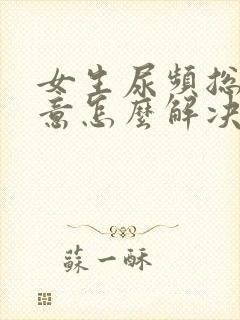 女生尿頻總
意怎麼解決
蘇一酥